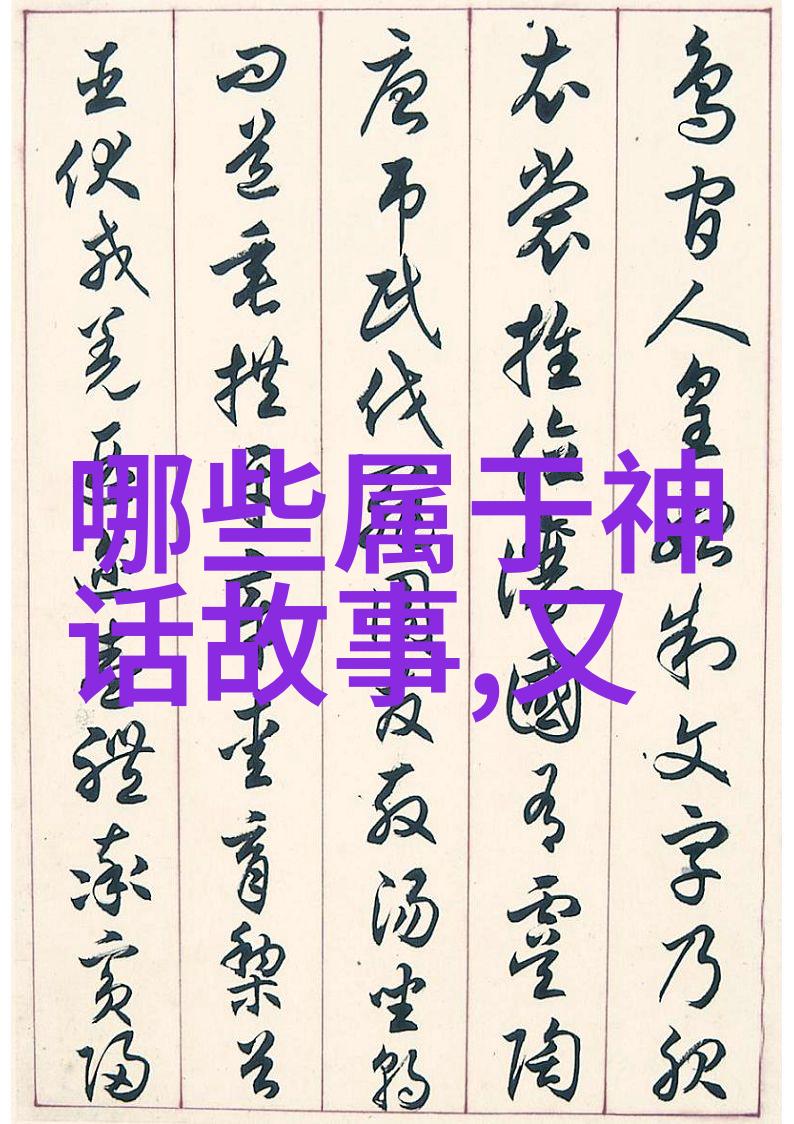 鸟官人皇始制文字乃服
衣裳推位让國有虞陶
唐吊民伐罪周发殷汤坐朝
问道垂拱平章爱育黎首
臣伏戎羌遐迩壹體率宾归
哪些属于神
话故事,又